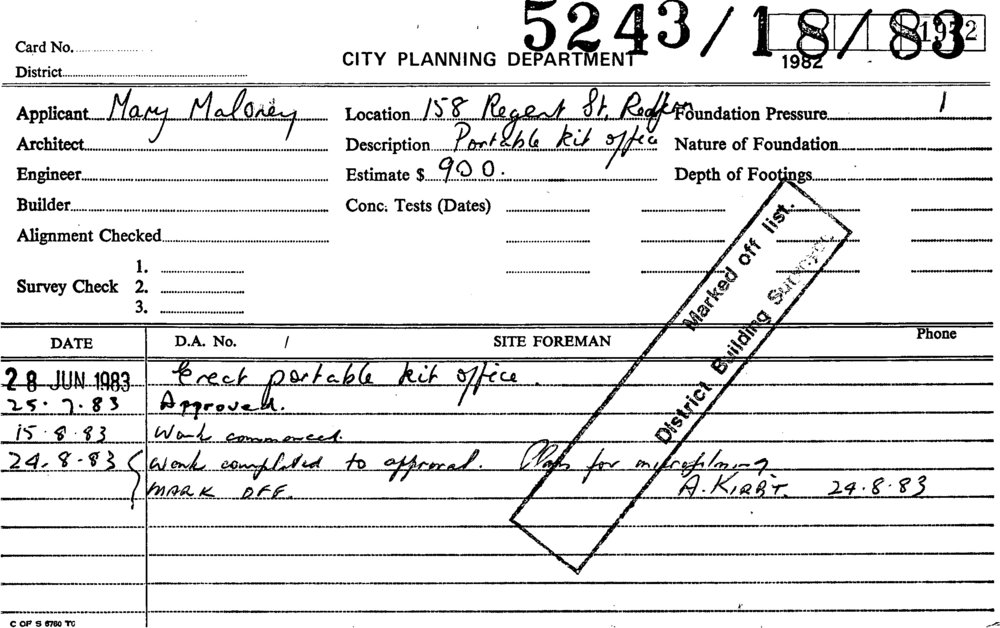 5243/18/83
Card No.
CITY PLANNING DEPARTMENT
1982
District
Applicant Mary Maloney
Location 158 Regent St, Redfern
Foundation Pressure
Architect
Description Portable kit office
Nature of Foundation
Engineer
Estimate $ 900.
Depth of Footings
Builder
Conc. Tests (Dates)
Alignment Checked
Survey Check
1.
2.
3.
Marked off list.
District Building Surveyor
DATE D.A. No. / SITE FOREMAN Phone
28 JUN 1983 Erect portable kit office.
25. 7. 83 Approved.
15. 8. 83 Work commenced.
24. 8. 83 Work completed to approval. Plans for microfilming
MARK OFF. A. KIRBY. 24.8.83
C OF S 6760 TC